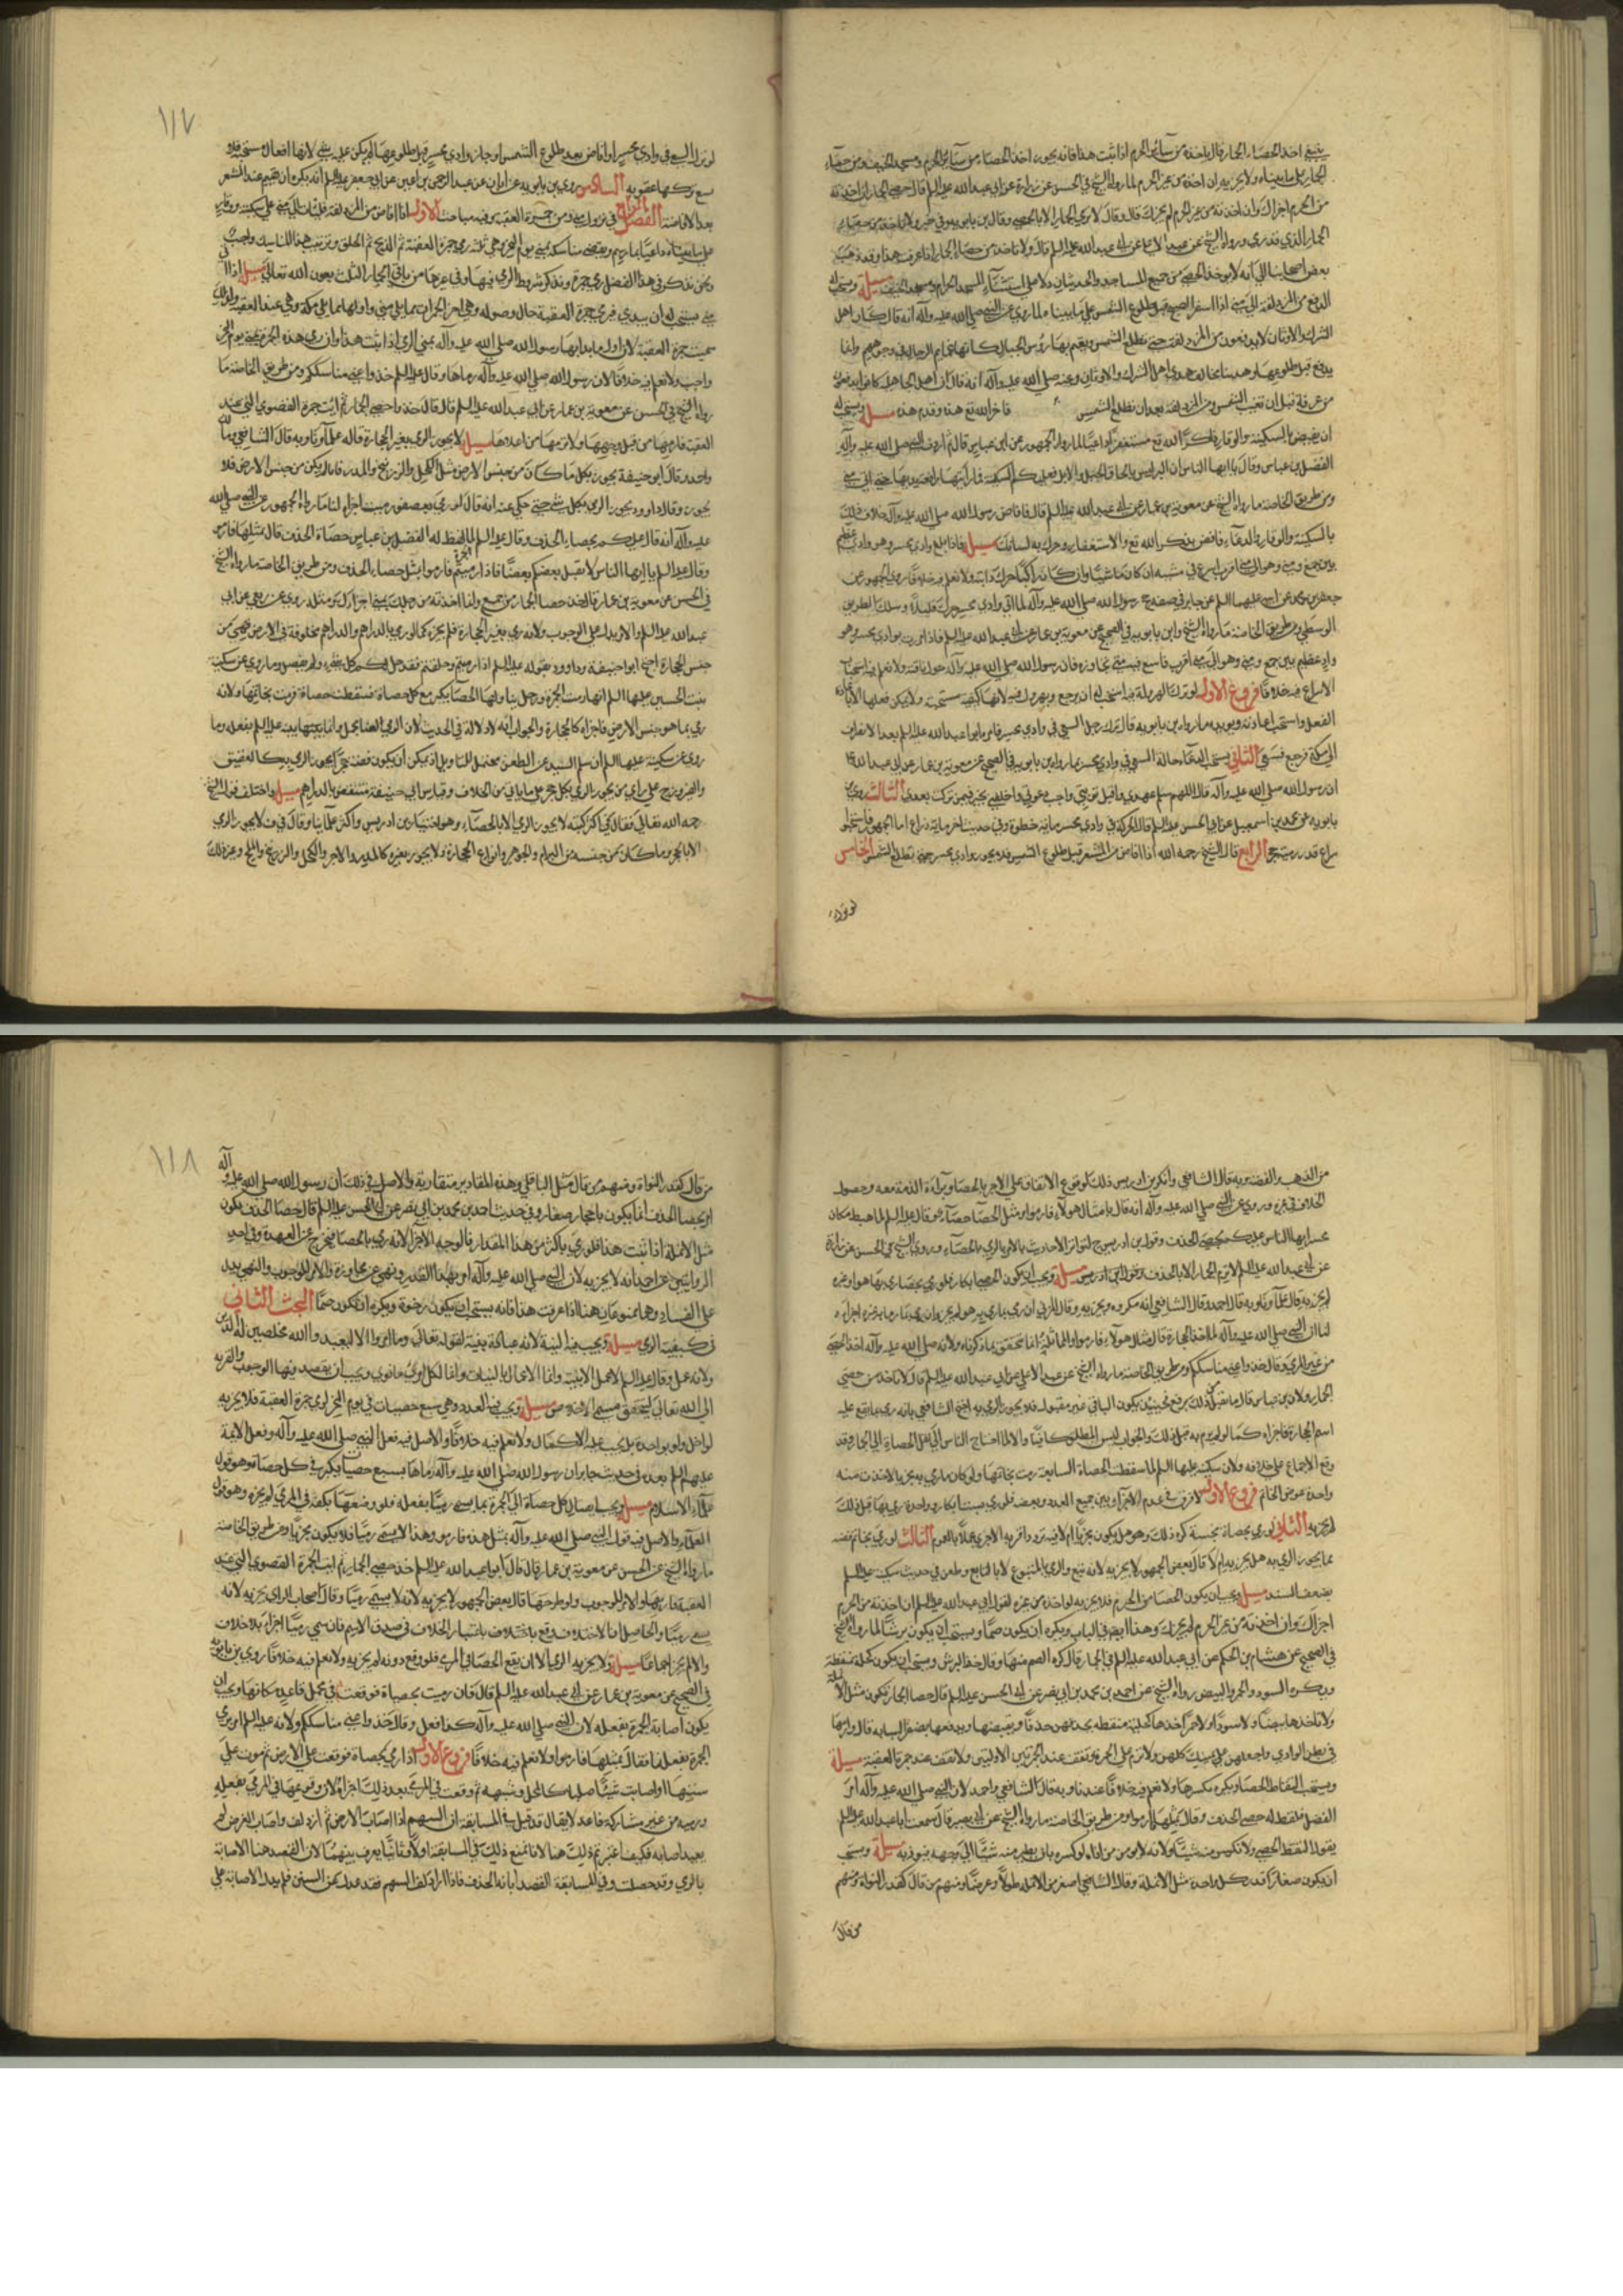 ينبغي اخذ الحصاء الجمار قال ياخذه من سائر الحرم اذا ثبت هذا فانه يجوز اخذ الحصاء من سائر الحرم ومسجد الخيف ومن حصاء
الجمار على ما بيناه ولا يجزيه ان اخذه من غير الحرم لما رواه الشيخ في الحسن عن زرارة عن ابي عبد الله عليه السلم قال حصى الجمار ان اخذته
من الحرم اجزاك وان اخذته من غير الحرم لم يجزك قال وقال لا ترمي الجمار الا بالحصى
بعض اصحابنا الى انه لا يوخذ الحصى من جميع المساجد والحديثان دلا على استثناء المسجد الحرام ومسجد الخيف مسيلة ويستحب له
الدفع من المزدلفة الى منى اذا اسفر الصبح قبل طلوع الشمس على ما بيناه لما روي عن النبي صلى الله عليه وآله انه قال كان اهل
الشرك والاوثان لا يدفعون من المزدلفة حتى تطلع الشمس ويعتم بها رؤس الجبال كانها عمايم الرجال في وجوههم وانا
من عرفة قبل ان تغيب الشمس ومن المزدلفة بعد ان تطلع الشمس فاخر الله تع هذه وقدم هذه مسيلة ويستحب له
ان يفيض بالسكينة والوقار ذاكرا لله تع مستغفرا داعيا لما رواه الجمهور عن ابن عباس قال ثم اردف النبي صلى الله عليه وآله
الفضل بن عباس وقال يا ايها الناس ان البر ليس بايجاف الخيل والابل فعليكم بالسكينة فما رايتها رافعة يديها حتى اتى منى
ومن طريق الخاصة ما رواه الشيخ عن معوية بن عمار عن ابي عبد الله عليه السلم قال فافاض رسول الله صلى الله عليه وآله خلاف ذلك
بالسكينة والوقار والدعاء فافض بذكر الله تع والاستغفار وحرك به لسانك مسيلة فاذا بلغ وادي محسر وهو وادي عظيم
جعفر بن محمد عن ابيه عليهما السلم عن جابر في صفة حج رسول الله صلى الله عليه وآله لما اتى وادي محسر حرك قليلا وسلك الطريق
الوسطى ومن طريق الخاصة ما رواه الشيخ وابن بابويه في الصحيح عن معوية بن عمار عن ابي عبد الله عليه السلم فاذا مررت بوادي محسر وهو
واد عظيم بين جمع ومنى وهو الى منى اقرب فاسع فيه حتى تجاوزه فان رسول الله صلى الله عليه وآله حرك ناقته
الاسراع فيه خلافا فروع الاول لو ترك الهرولة فيه استحب له ان يرجع ويهرول فيه لانها كيفية مستحبة ولا يمكن فعلها الا باعادة
الفعل واستحب اعادته ويؤيده ما رواه ابن بابويه قال ترك رجل السعي في وادي محسر فامره ابو عبد الله عليه السلم بعد الانصراف
الى مكة فرجع فسعى الثاني يستحب الدعاء حالة السعي في وادي محسر بما رواه ابن بابويه في الصحيح عن معوية بن عمار عن ابي عبد الله
ان رسول الله صلى الله عليه وآله قال اللهم سلم عهدي واقبل توبتي واجب دعوتي واخلفني بخير فيمن تركت بعدي الثالث روى
بابويه عن محمد بن اسمعيل عن ابي الحسن عليه السلم قال الحركة في وادي محسر ماية خطوة وفي حديث اخر ماية ذراع
ذراع قدر رمية حجر الرابع قال الشيخ رحمه الله اذا افاض من المشعر قبل طلوع الشمس فلا يجوز وادي محسر حتى تطلع الشمس الخامس
١١٧
لو ترك السعي في وادي محسر او افاض بعد طلوع الشمس او جاز وادي محسر قبل طلوعها لم يكن عليه شي لانها افعال مستحبة
السادس روى ابن بابويه عن ابان عن عبد الرحمن بن اعين عن ابي جعفر عليه السلم انه يكره ان يقيم عند المشعر
بعد الافاضة الفصل الرابع في نزول منى ورمي جمرة العقبة وفيه مباحث الاول اذا افاض من المزدلفة فليات الى منى على سكينة ووقار
على ما بيناه داعيا بما رسم ويقضي مناسكه بمنى يوم النحر وهي ثلثة رمي جمرة العقبة ثم الذبح ثم الحلق وترتيب هذه المناسك واجب
ونحن نذكر في هذا الفصل رمي جمرة ونذكر شروط الرمي فيها وفي غيرها من باقي الجمار الثلث بعون الله تعالى مسيلة اذا
منى يستحب له ان يبتدي فيرمي جمرة العقبة حال وصوله وهي اخر الجمرات مما يلي منى واولها مما يلي مكة وهي عند العقبة
سميت جمرة العقبة لان اول ما بدا بها رسول الله صلى الله عليه وآله بمنى الرمي اذا ثبت هذا فان رمي هذه الجمرة بمنى يوم النحر
واجب ولا نعلم فيه خلافا لان رسول الله صلى الله عليه وآله رماها وقال عليه السلم خذوا عني مناسككم ومن طريق الخاصة ما
رواه الشيخ في الحسن عن معوية بن عمار عن ابي عبد الله عليه السلم قال قال خذ حصى الجمار ثم ائت جمرة القصوى التي عند
العقبة فارمها من قبل وجهها ولا ترمها من اعلاها مسيلة لا يجوز الرمي بغير الحجارة قاله علماؤنا وبه قال الشافعي ومالك
واحمد وقال ابو حنيفة يجوز بكل ما كان من جنس الارض مثل الكحل والزرنيخ والمدر فاما لم يكن من جنس الارض فلا
يجوز وقال داود يجوز الرمي بكل شي حتى حكى عنه انه قال لو رمى بعصفور ميت اجزاه لنا ما رواه الجمهور عن النبي صلى الله
عليه وآله انه قال عليكم بحصاء الخذف وقال عليه السلم لما لقط له الفضل بن عباس حصاة الخذف قال بمثلها فارموا
وقال عليه السلم يا ايها الناس لا يقتل بعضكم بعضا فاذا رميتم الجمرة فارموا بمثل حصاء الخذف ومن طريق الخاصة ما رواه الشيخ
في الحسن عن معوية بن عمار قال خذ حصا الجمار من جمع وان اخذته من رحلك بمنى اجزاك
عبد الله عليه السلم والامر يدل على الوجوب ولانه رمى بغير الحجارة فلم يجزه كما لو رمى بالدراهم
جنس الحجارة احتج ابو حنيفة وداود بقوله عليه السلم اذا رميتم وحلقتم فقد حل لكم كل شي ولم يفصل وما روي عن سكينة
بنت الحسين عليهما السلم انها رمت الجمرة ورجل يناولها الحصا يكبر مع كل حصاة فسقطت حصاة فرمت بخاتمها ولانه
رمى بما هو جنس الارض فاجزاه كالحجارة والجواب انه لا دلالة في الحديث لان الرمي لفظ مجمل وانما يبينه عليه السلم بفعله وما
روي عن سكينة عليها السلم ان سلم السند عن الطعن محتمل للتاويل اذ يمكن ان يكون فصه حجرا يجوز الرمي به كالعقيق
والفيروزج على راي من يجوز الرمي بكل حجر على ما ياتي من الخلاف وقياس ابي حنيفة منتقض بالدراهم مسيلة واختلف قول الشيخ
رحمه الله تعالى فقال في اكثر كتبه لا يجوز الرمي الا بالحصاء وهو اختيار ابن ادريس واكثر علمائنا وقال في ف لا يجوز الرمي
الا بالحجر وما كان من جنسه من البرام والجوهر وانواع الحجارة ولا يجوز بغيره كالمدر والاجر والكحل والزرنيخ والملح وغير ذلك
من الذهب والفضة وبه قال الشافعي وانكر ابن ادريس ذلك لوقوع الاتفاق على الاجزا بالحصا وبراءة الذمة معه وحصول
الخلاف في غيره وروي عن النبي صلى الله عليه وآله انه قال بامثال هولاء فارموا ومثل الحصا حصاء هو قال عليه السلم لما هبط مكان
محسر ايها الناس عليكم بحصى الخذف وقول ابن ادريس ج لتواتر الاحاديث بالامر بالرمي بالحصاء وروى الشيخ في الحسن عن زرارة
عن ابي عبد الله عليه السلم لا ترم الجمار الا بالحصى
لم يجزيه قاله علماؤنا وبه قال احمد وقال الشافعي انه مكروه ويجزيه وقال المزني ان رمى بما رمى به هو لم يجز وان رمى بما رماه غيره اجزاه
لنا ان النبي صلى الله عليه وآله لما اخذ الحجارة قال بمثل هولاء فارموا والمماثلة انما تتحقق بما ذكرناه ولانه صلى الله عليه وآله اخذ الحصى
من غير المرمى وقال خذوا عني مناسككم ومن طريق الخاصة ما رواه الشيخ عن عبد الاعلى عن ابي عبد الله عليه السلم قال لا تاخذ من حصى
الجمار ولان ابن عباس قال ما تقبل من ذلك يرفع فحينئذ يكون الباقي غير مقبول فلا يجوز الرمي به احتج الشافعي بانه رمى بما يقع عليه
اسم الحجارة فاجزاه كما لو لم يرم به قبل ذلك والجواب ليس المطلق كافيا والا لما احتاج الناس الى نقل الحصاة الى الجمار وقد
وقع الاجماع على خلافه ولان سكينة عليها السلم لما سقطت الحصاة السابعة رمت بخاتمها ولو كان ما رمي به يجزي لاخذت منه
واحدة عوض الخاتم فروع الاول لا فرق في عدم الاجزاء بين جميع العدد وبعضه فلو رمى ستا بكار وواحدة رمي بها قبل ذلك
لم يجزه الثاني لو رمى بحصاة نجسة كره ذلك وهل يكون مجزيا ام لا فيه تردد اقربه الاجزاء عملا بالعموم الثالث لو رمى بخاتم فضه
مما يجوز الرمي به هل يجزيه ام لا قال بعض الجمهور لا يجزيه لانه تبع والرمي بالمتبوع لا بالتابع وطعن في حديث سكينة عليها السلم
بضعف السند مسيلة ويجب ان يكون الحصا من الحرم فلا يجزيه لو اخذه من غيره لقول ابي عبد الله عليه السلم ان اخذته من الحرم
اجزاك وان اخذته من غير الحرم لم يجزك وهذا نص في الباب ويكره ان يكون صما ويستحب ان يكون برشا لما رواه الشيخ
في الصحيح عن هشام بن الحكم عن ابي عبد الله عليه السلم في الجمار قال كره الصم منها وقال خذ البرش ويستحب ان يكون كحلية منقطة
ويكره السود والحمر والبيض رواه الشيخ عن احمد بن محمد بن ابي نصر عن ابي الحسن عليه السلم قال حصا الجمار تكون مثل الانملة
ولا تاخذها بيضا ولا سودا ولا حمرا خذها كحلية منقطة تخذفهن خذفا وتضعها ويدفعها بظفر السبابة قال وارمها
في بطن الوادي واجعلهن على يمينك كلهن ولا ترم على الجمرة وتقف عند الجمرتين الاوليين ولا تقف عند جمرة العقبة مسيلة
ويستحب التقاط الحصا ويكره تكسيرها ولا نعلم فيه خلافا عندنا وبه قال الشافعي واحمد لان النبي صلى الله عليه وآله امر
الفضل فلقط له حصى الخذف وقال بمثلها فارموا ومن طريق الخاصة ما رواه الشيخ عن ابي بصير قال سمعت ابا عبد الله عليه السلم
يقول التقط الحصى ولا تكسر منه شيئا ولانه لا يومن من اذاه لو كسره بان يطير منه شيئا الى وجهه فيوذيه مسيلة ويستحب
ان يكون صغارا قدر كل واحدة مثل الانملة وقال الشافعي اصغر من الانملة طولا وعرضا ومنهم من قال كقدر النواة ومنهم
من قال
١١٨
من قال كقدر النواة ومنهم من قال مثل الباقلى وهذه المقادير متقاربة والاصل في ذلك ان رسول الله صلى الله عليه وآله
امر بحصا الخذف انما يكون باحجار صغار وفي حديث احمد بن محمد بن ابي نصر عن ابي الحسن عليه السلم قال حصا الخذف يكون
مثل الانملة اذا ثبت هذا فلو رمى باكثر من هذا المقدار فالوجه الاجزاء لانه رمى بالحصا فيخرج عن العهدة وفي احدى
الروايتين عن احمد انه لا يجزيه لان النبي صلى الله عليه وآله امر بهذا القدر ونهى عن تجاوزه والامر للوجوب والنهي يدل
على الفساد وهما ممنوعان هنا اذا عرفت هذا فانه يستحب ان يكون رخوة ويكره ان تكون صما البحث الثاني
في كيفية الرمي مسيلة ويجب فيه النية لانه عبادة لقوله تعالى وما امروا الا ليعبدوا الله مخلصين له الدين
ولانه عمل وقال عليه السلم لا عمل الا بنية وانما الاعمال بالنيات وانما لكل امرئ ما نوى ويجب ان يقصد فيها الوجوب والقربة
الى الله تعالى ليتحقق مسمى الاخلاص مسيلة ويجب فيه العدد وهي سبع حصيات في يوم النحر لرمي جمرة العقبة فلا يجزيه
لو اخل ولو بواحدة بل يجب عليه الاكمال ولا نعلم فيه خلافا والاصل فيه فعل النبي صلى الله عليه وآله وفعل الائمة
عليهم السلم بعده في حديث جابر ان رسول الله صلى الله عليه وآله رماها بسبع حصيات يكبر في كل حصاة وهو قول
علماء الاسلام مسيلة ويجب ايصال كل حصاة الى الجمرة بما يسمى رميا بفعله فلو وضعها بكفه في المرمى لم يجزه وهو قول
العلماء والاصل فيه قول النبي صلى الله عليه وآله بمثل هذه فارموا وهذا لا يسمى رميا فلا يكون مجزيا ومن طريق الخاصة
ما رواه الشيخ في الحسن عن معوية بن عمار قال قال ابو عبد الله عليه السلم خذ حصى الجمار ثم ائت الجمرة القصوى التي عند
العقبة فارمها والامر للوجوب ولو طرحها قال بعض الجمهور لا يجزيه لانه لا يسمى رميا وقال اصحاب الراي يجزيه لانه
يسمى رميا والحاصل ان الاختلاف وقع باعتبار الخلاف في صدق الاسم فان سمي رميا اجزاه بلا خلاف
والا لم يجز اجماعا مسيلة ولا يجزيه الرمي الا ان يقع الحصا في المرمى فلو وقع دونه لم يجزيه ولا نعلم فيه خلافا روى ابن بابويه
في الصحيح عن معوية بن عمار عن ابي عبد الله عليه السلم قال فان رميت بحصاة فوقعت في محمل فاعد مكانها ويجب ان
يكون اصابة الجمرة بفعله لان النبي صلى الله عليه وآله كذا فعل وقال خذوا عني مناسككم ولانه عليه السلم امر برمي
الجمرة بفعلنا فقال بمثلها فارموا ولا نعلم فيه خلافا فروع الاول اذا رمى بحصاة فوقعت على الارض ثم مرت على
سننها او اصابت شيئا صلبا كالمحمل وشبهه ثم وقعت في المرمى بعد ذلك اجزاه لان وقوعها في المرمى بفعله
ورميه من غير مشاركة فاعد لا يقال قد قيل في المسابقة ان السهم اذا اصاب الارض ثم ازدلف واصاب الغرض لم
يعتد اصابة فكيف اعتبرتم ذلك هنا لانا نمنع ذلك في المسابقة اولا وثانيا يعرف بينهما لان القصد هنا الاصابة
بالرمي وقد حصلت وفي المسابقة القصد ابانة الحذف فاذا ازدلف السهم فقد عدل عن السنن فلم يدل الاصابة على